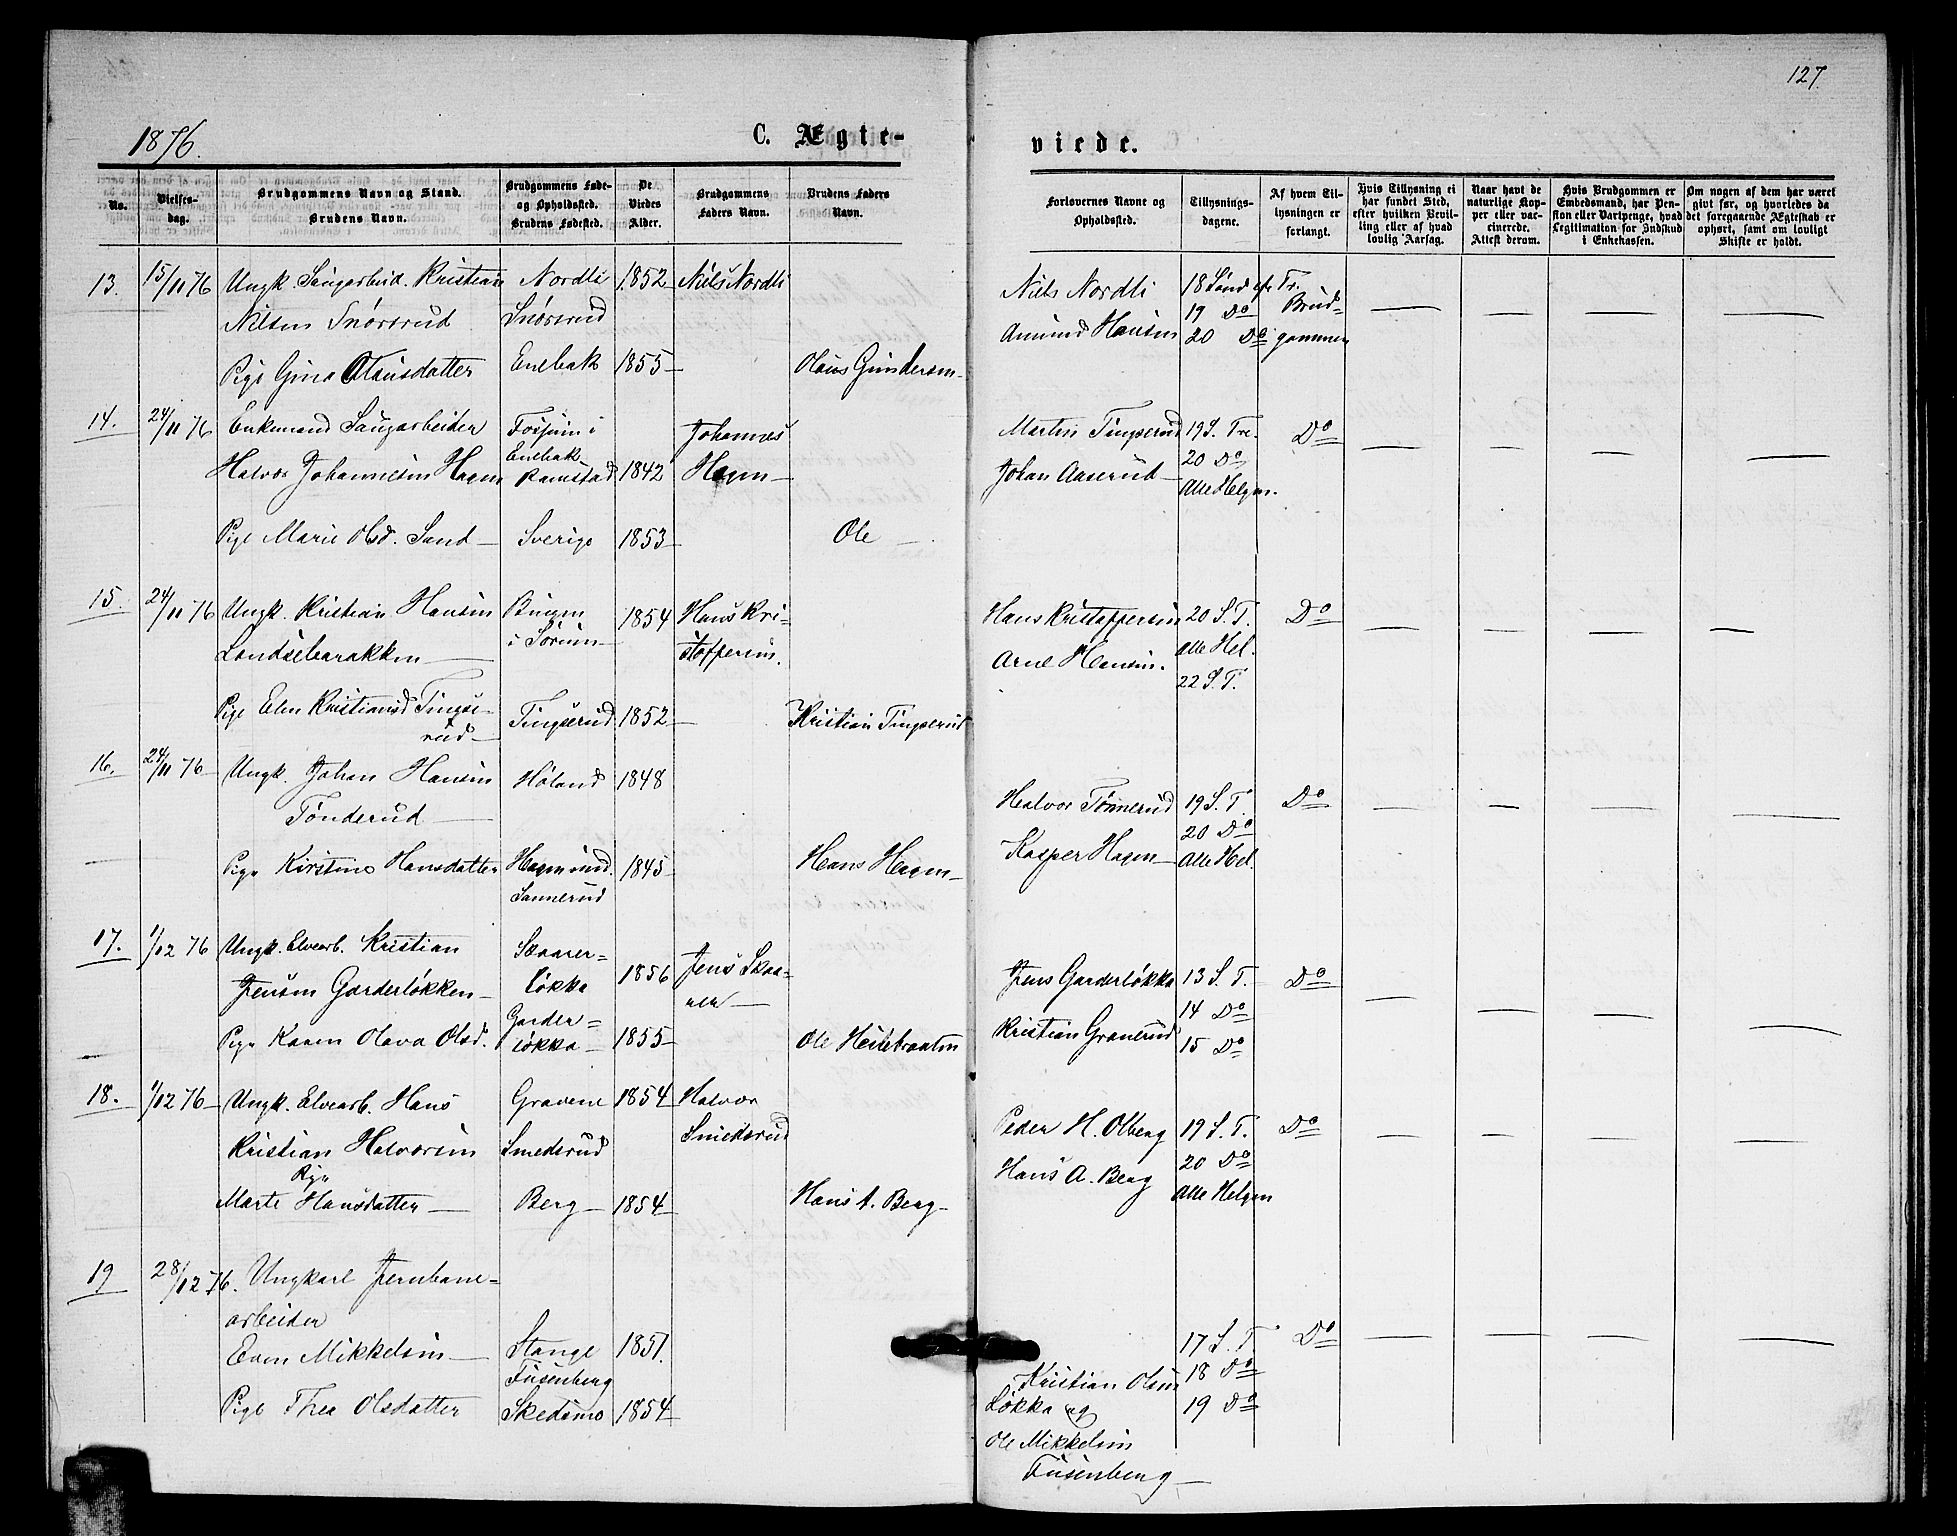 127.
1876.
C. Ægte-
viede.
No.
Vielses-
dag.
Brudgommens Navn og Stand.
Brudens Navn.
Brudgommens Føde-
og Opholdssted.
Brudens Fødested.
De
Viedes
Alder.
Brudgommens
Faders Navn.
Brudens Faders
Navn.
Forlovernes Navne og
Opholdssted.
Tillysnings-
dagene.
Af hvem Til-
lysningen er
forlangt.
Hvis Tillysning ei
har fundet Sted,
efter hvilken Bevil-
ling eller af hvad
lovlig Aarsag.
Naar havt de
naturlige Kop-
per eller vac-
cinerede.
Attest derom.
Hvis Brudgommen er
Embedsmand, har Pen-
sion eller Vartpenge, hvad
Legitimation for Indskud
i Enkekassen.
Om nogen af dem har været
givt før, og hvorledes da
det foregaaende Ægteskab er
ophørt, samt om lovligt
Skifte er holdt.
13. 15/11 76 Ungk. Saugarbeid. Kristian Nordli 1852 Niels Nordli
Nilsen Snørsrud Snørsrud
Pige Gina Olausdatter Enebak 1855 Olaus Gundersen
Niels Nordli 18 Sønd. e. Tr. Brud-
Amund Hansen 19 Do
20 Do gommen
14. 24/11 76 Enkemand Saugarbeider Fosjum i Johannes
Halvor Johannesen Hagen Enebak Ramstad 1842 Hagen
Pige Marie Olsd. Sand Sverige 1853 Ole
Martin Tingserud 19 S. Tr. Do
Johan Aaserud 20 Do
Alle Helgen.
15. 24/11 76 Ungk. Kristian Hansen Bingen 1854 Hans Kri-
Landsebarakken i Sørum stoffersen.
Pige Elen Kristiansd Tingse- Tingserud 1852 Kristian Tingserud
rud
Hans Kristoffersen 20 S. T. Do
Arne Hansen. Alle Hel.
22 S. T.
16. 24/11 76 Ungk. Johan Hansen Høland 1848
Tønderud
Pige Kirstine Hansdatter Hagen und. 1845 Hans Hagen
Sannerud
Halvor Tønnerud 19 S. T. Do
Kasper Hagen 20 Do
Alle Hel.
17. 1/12 76 Ungk. Elvearb. Kristian Skaarer- 1856 Jens Skaa-
Jensen Garderløkken løkka rer
Pige Karen Olava Olsd. Garder- 1855 Ole Heilebraaten
løkka
Jens Garderløkka 13 S. T. Do
Kristian Granerud 14 Do
15 Do
18. 1/12 76 Ungk. Elvearb. Hans Gravene 1854 Halvor
Kristian Halvorsen Smedsrud Smedsrud
Pige
Marte Hansdatter Berg 1854 Hans A. Berg
Peder H. Olberg 19 S. T. Do
Hans A. Berg 20 Do
Alle Helgen
19 28/12 76. Ungkarl Jernbane-
arbeider
Even Mikkelsen Stange 1851.
Fusenberg
Pige Thea Olsdatter Skedsmo 1854
17 S. T. Do
Kristian Olsen 18 Do
Løkka og 19 Do
Ole Mikkelsen
Fusenberg